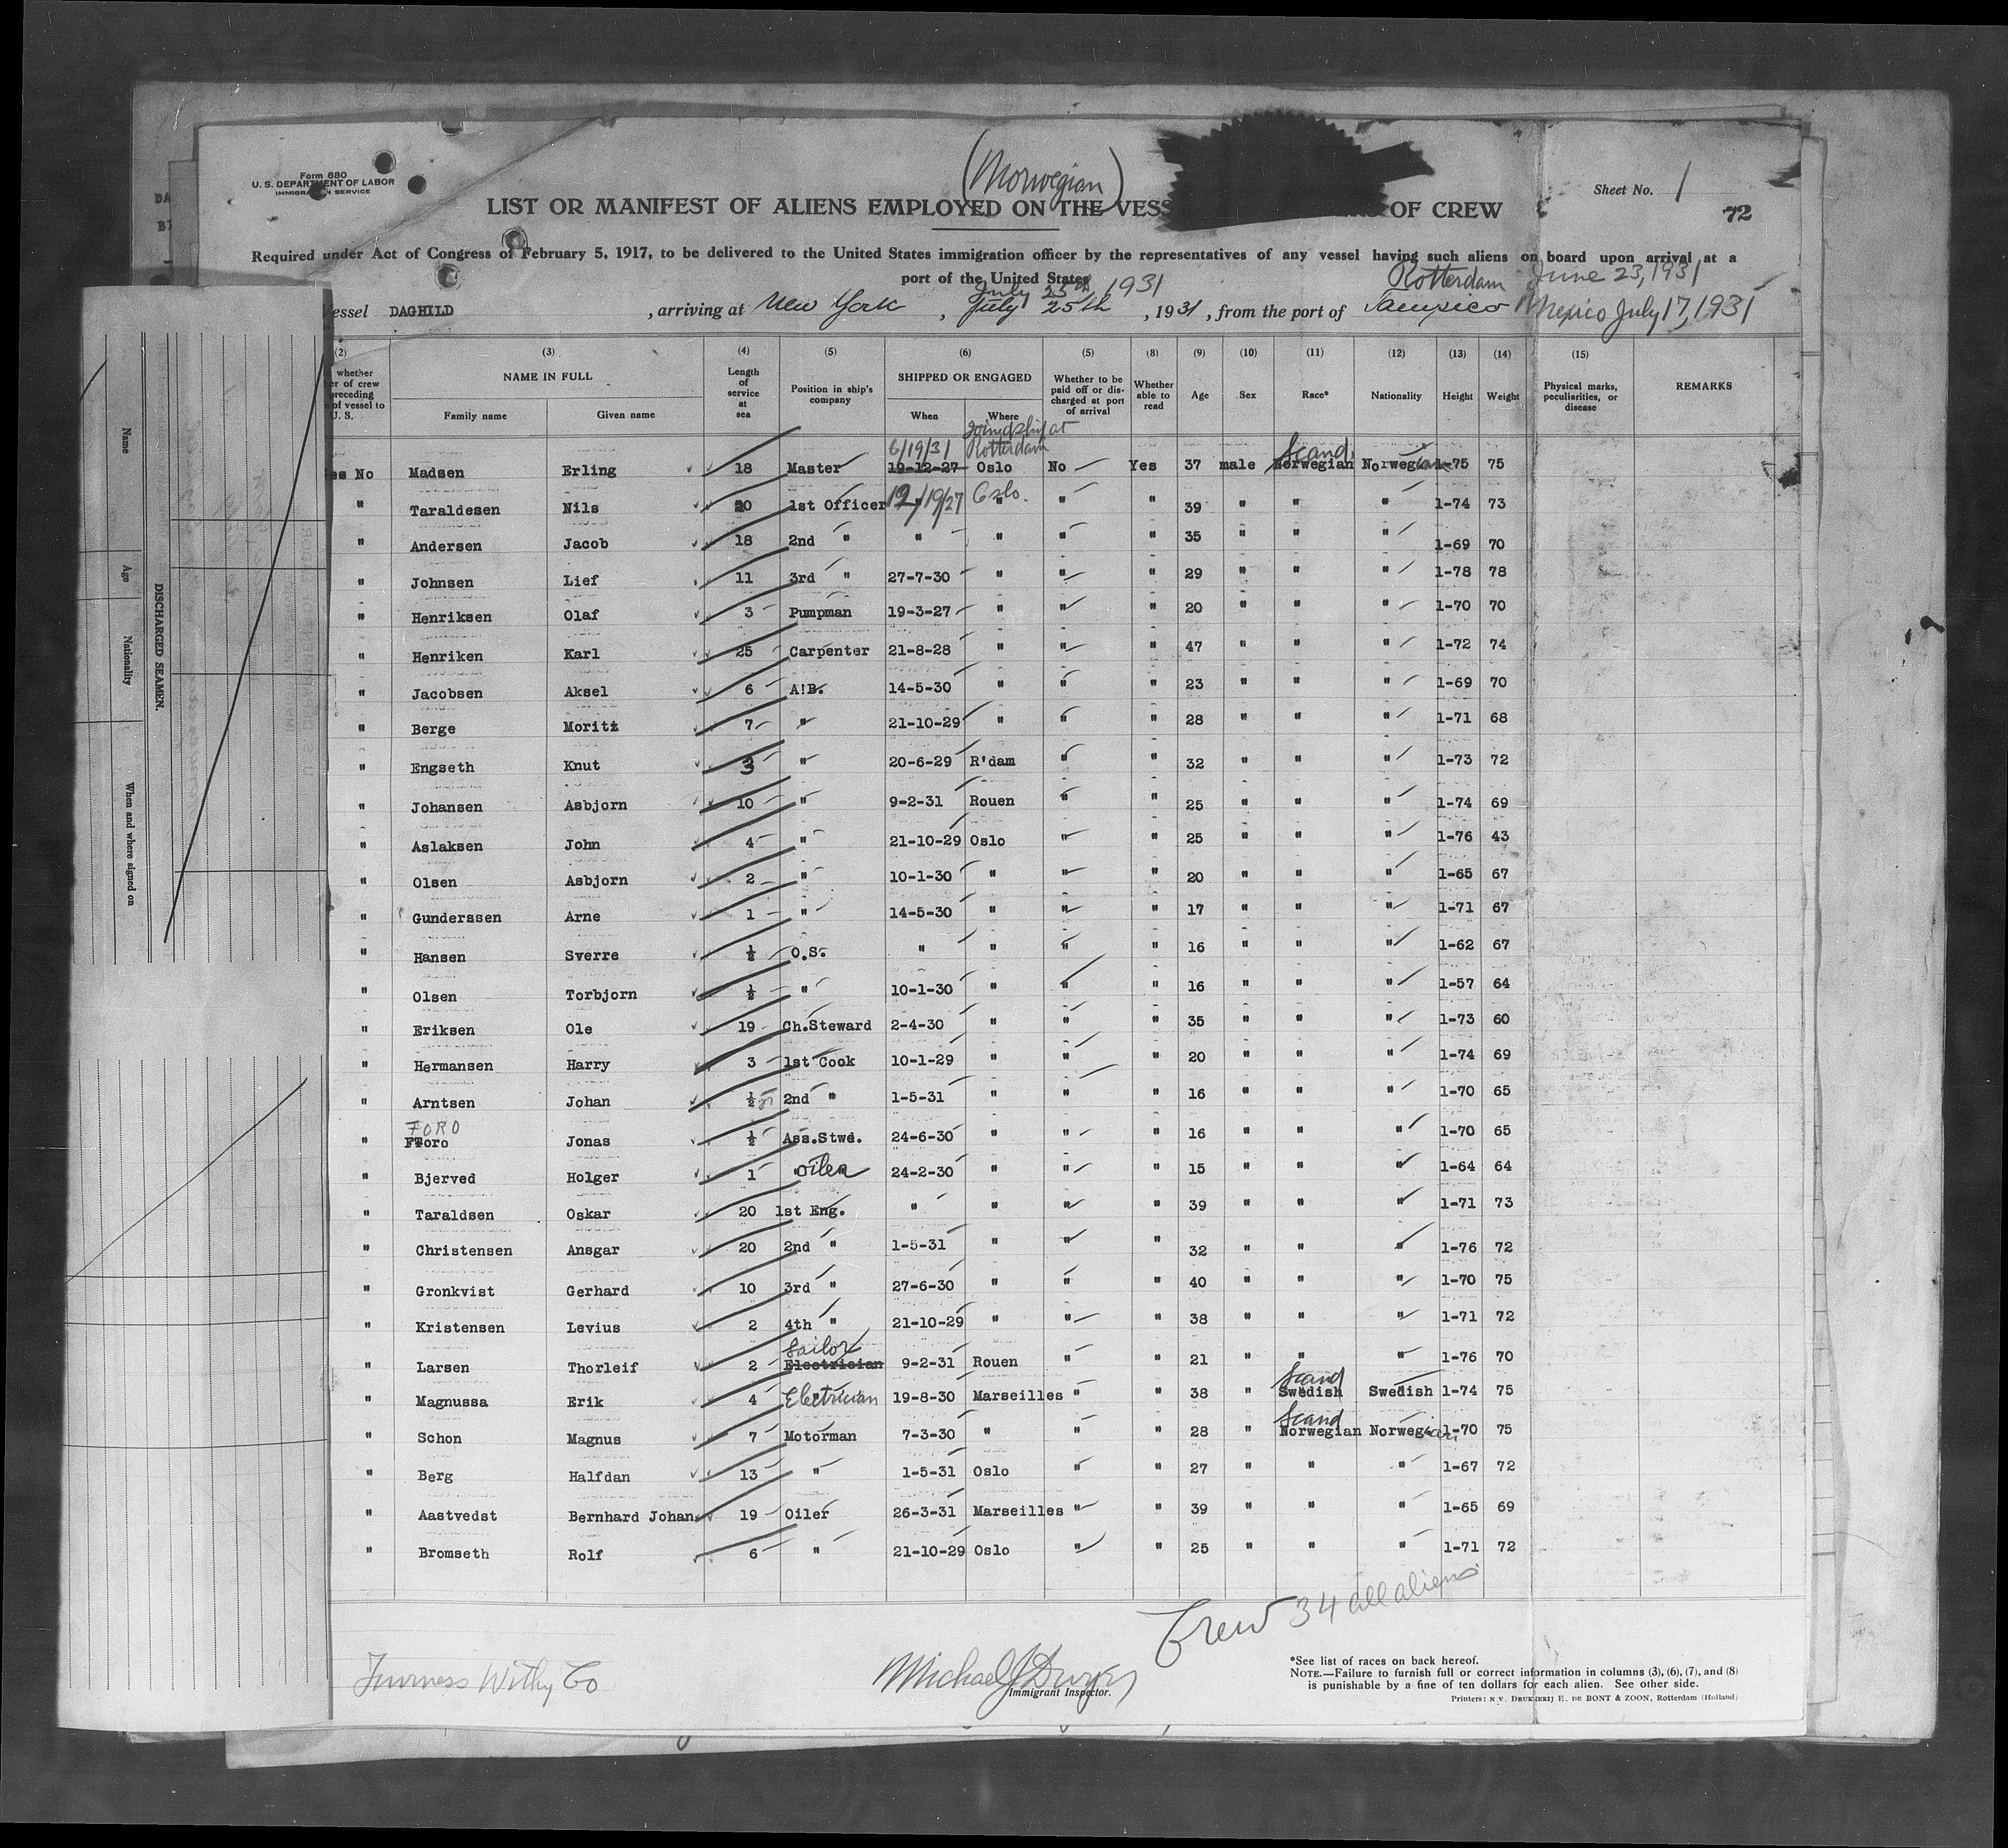 (Norwegian)
Form 680
U. S. DEPARTMENT OF LABOR
IMMIGRATION SERVICE
Sheet No. 1
72
LIST OR MANIFEST OF ALIENS EMPLOYED ON THE VESS OF CREW
Required under Act of Congress of February 5, 1917, to be delivered to the United States immigration officer by the representatives of any vessel having such aliens on board upon arrival at a
port of the United States
July 25th, 1931
Rotterdam June 23, 1931
essel DAGHILD , arriving at New York , July 25th , 1931 , from the port of Tampico Mexico July 17, 1931
(2) (3) (4) (5) (6) (5) (8) (9) (10) (11) (12) (13) (14) (15)
whether er of crew preceding of vessel to U. S. NAME IN FULL Length of service at sea Position in ship's company SHIPPED OR ENGAGED Whether to be paid off or discharged at port of arrival Whether able to read Age Sex Race* Nationality Height Weight Physical marks, peculiarities, or disease REMARKS
Family name Given name When Where
6/19/31 Joined ship at Rotterdam Scand
es No Madsen Erling 18 Master 19-12-27 Oslo No Yes 37 male Norwegian Norwegian 1-75 75
" Taraldesen Nils 20 1st Officer 12/19/27 Oslo. " " 39 " " " 1-74 73
" Andersen Jacob 18 2nd " " " " " 35 " " " 1-69 70
" Johnsen Lief 11 3rd " 27-7-30 " " " 29 " " " 1-78 78
" Henriksen Olaf 3 Pumpman 19-3-27 " " " 20 " " " 1-70 70
" Henriken Karl 25 Carpenter 21-8-28 " " " 47 " " " 1-72 74
" Jacobsen Aksel 6 A!B. 14-5-30 " " " 23 " " " 1-69 70
" Berge Moritz 7 " 21-10-29 " " " 28 " " " 1-71 68
" Engseth Knut 3 " 20-6-29 R'dam " " 32 " " " 1-73 72
" Johansen Asbjorn 10 " 9-2-31 Rouen " " 25 " " " 1-74 69
" Aslaksen John 4 " 21-10-29 Oslo " " 25 " " " 1-76 43
" Olsen Asbjorn 2 " 10-1-30 " " " 20 " " " 1-65 67
" Gunderssen Arne 1 " 14-5-30 " " " 17 " " " 1-71 67
" Hansen Sverre ½ O.S. " " " " 16 " " " 1-62 67
" Olsen Torbjorn ½ " 10-1-30 " " " 16 " " " 1-57 64
" Eriksen Ole 19 Ch.Steward 2-4-30 " " " 35 " " " 1-73 60
" Hermansen Harry 3 1st Cook 10-1-29 " " " 20 " " " 1-74 69
" Arntsen Johan ½ yr 2nd " 1-5-31 " " " 16 " " " 1-70 65
FORO
" Foro Jonas ½ Ass.Stwd. 24-6-30 " " " 16 " " " 1-70 65
" Bjerved Holger 1 " oiler 24-2-30 " " " 15 " " " 1-64 64
" Taraldsen Oskar 20 1st Eng. " " " " 39 " " " 1-71 73
" Christensen Ansgar 20 2nd " 1-5-31 " " " 32 " " " 1-76 72
" Gronkvist Gerhard 10 3rd " 27-6-30 " " " 40 " " " 1-70 75
" Kristensen Levius 2 4th " 21-10-29 " " " 38 " " " 1-71 72
Sailor
" Larsen Thorleif 2 Electrician 9-2-31 Rouen " " 21 " " " 1-76 70
Scand
" Magnussa Erik 4 Electrician 19-8-30 Marseilles " " 38 " Swedish Swedish 1-74 75
Scand
" Schon Magnus 7 Motorman 7-3-30 " " " 28 " Norwegian Norwegian 1-70 75
" Berg Halfdan 13 " 1-5-31 Oslo " " 27 " " " 1-67 72
" Aastvedst Bernhard Johan 19 Oiler 26-3-31 Marseilles " " 39 " " " 1-65 69
" Bromseth Rolf 6 " 21-10-29 Oslo " " 25 " " " 1-71 72
Crew 34 all aliens
Furness Withy Co
Michael J Dwyer
Immigrant Inspector.
*See list of races on back hereof.
NOTE.—Failure to furnish full or correct information in columns (3), (6), (7), and (8)
is punishable by a fine of ten dollars for each alien. See other side.
Printers: N.V. DRUKKERIJ E. DE BONT & ZOON, Rotterdam (Holland)
DISCHARGED SEAMEN.
Name Age Nationality When and where signed on